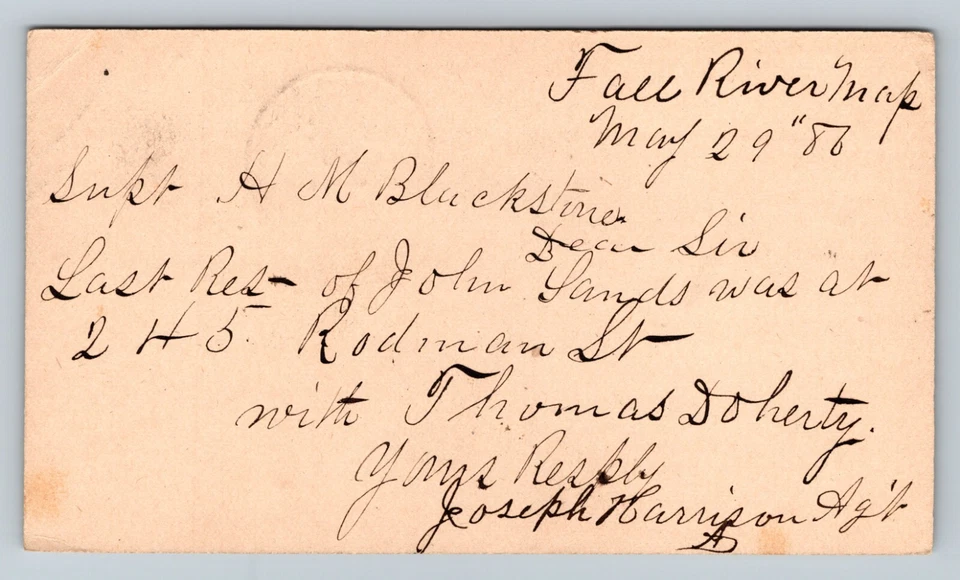 Fall River Mass
May 29" 86
Supt H M Blackstone
Dear Sir
Last Res- of John Sands was at
245 Rodman St
with Thomas Doherty.
Yours Resply
Joseph Harrison Agt